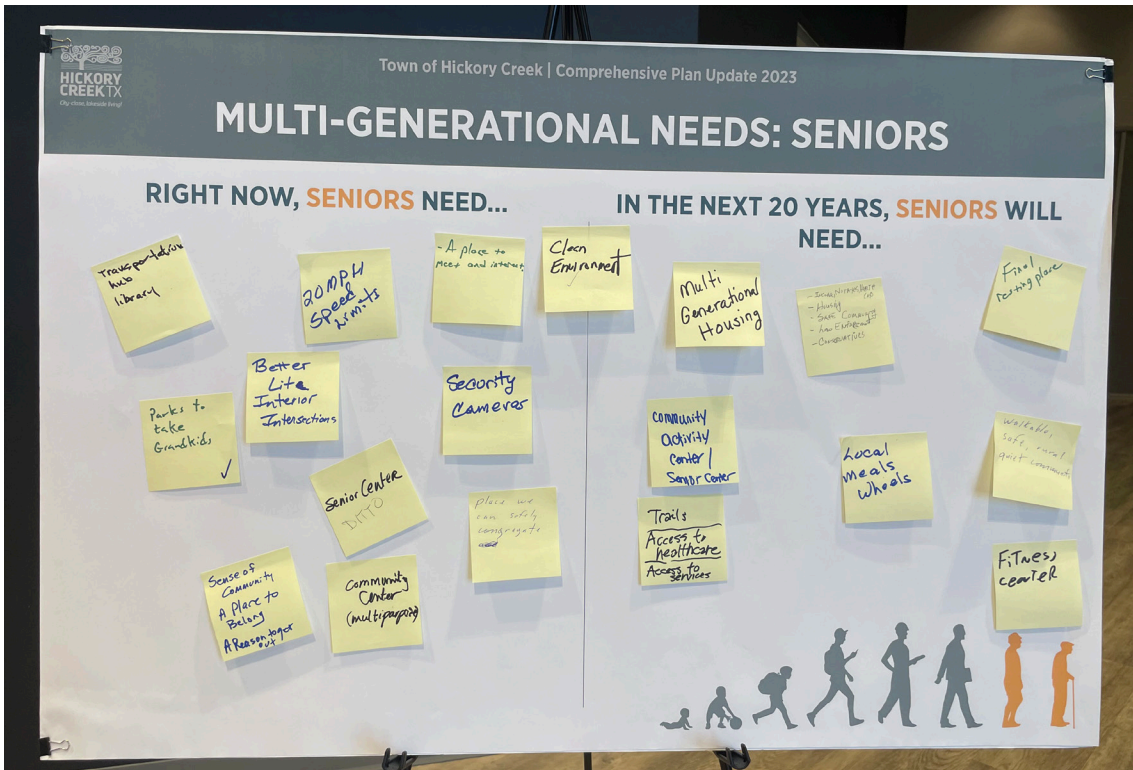 HICKORY
CREEK TX
City-close, lakeside living!
Town of Hickory Creek | Comprehensive Plan Update 2023
MULTI-GENERATIONAL NEEDS: SENIORS
RIGHT NOW, SENIORS NEED...
Transportation
hub
library
20 MPH
Speed
Limits
- A place to
meet and interact
Clean
Environment
Parks to
take
Grandkids
✓
Better
Lite
Interior
Intersections
Security
Cameras
Senior Center
DITTO
place we
can safely
congregate
Sense of
Community
A Place to
Belong
A Reason to get
out
Community
Center
(multipurpose)
IN THE NEXT 20 YEARS, SENIORS WILL
NEED...
Multi
Generational
Housing
- Housing
- Safe Community
- Law Enforcement
- Conservatives
Final
resting place
Community
activity
center /
Senior Center
Local
meals
wheels
walkable,
safe, rural
quiet community
Trails
Access to
healthcare
Access to
services
FiTness
center